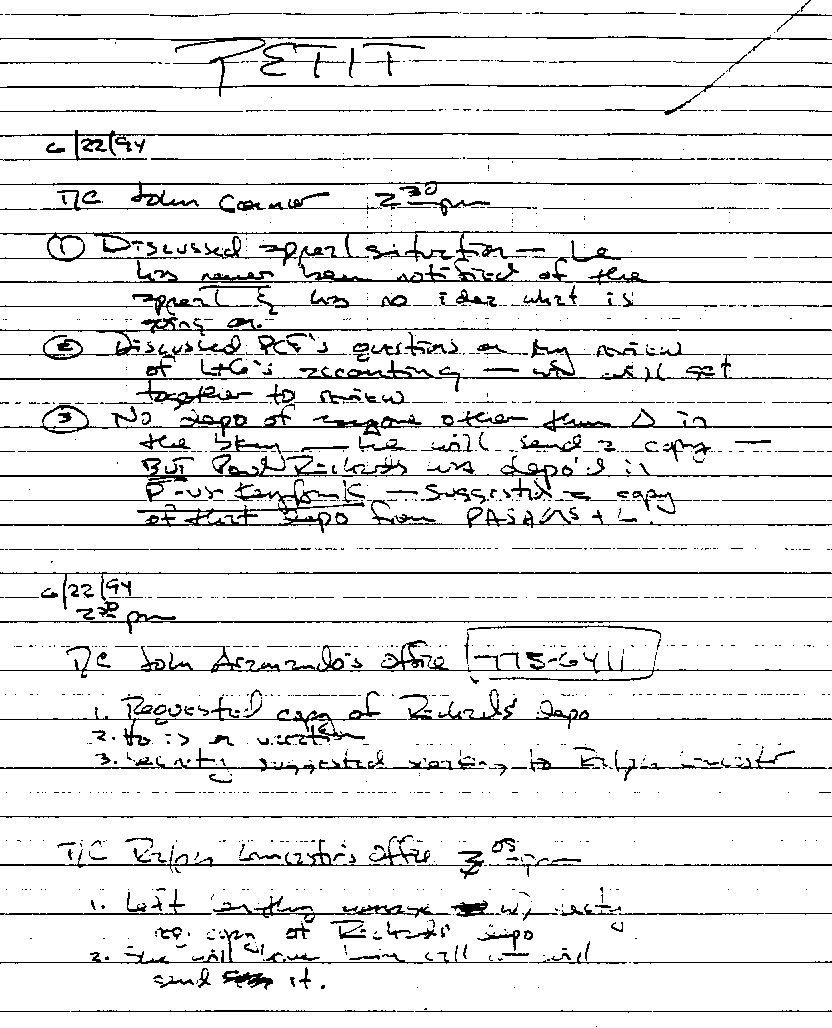 PETIT
6/22/94
T/C John Connor 2:30 pm
① Discussed appeal situation — he
has never been notified of the
appeal & has no idea what is
going on.
② Discussed PCF's questions on my review
of L+G's accounting — we will get
together to review
③ No depo of anyone other than Δ in
the bkcy — he will send a copy —
BUT Paul Richards was depo'd in
P vs Key Bank — suggested a copy
of that depo from
6/22/94
2:30 pm
T/C John Aromando's office 775-6411
1. Requested copy of Richards' depo
2. He is on vacation
3. Secretary suggested speaking to Ralph Lancaster
T/C Ralph Lancaster's office 3:05 pm
1. Left lengthy message w/ secty
re: copy of Richards' depo
2. She will have him call or will
send it.